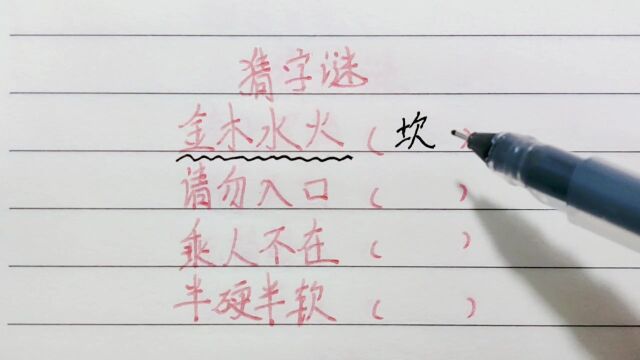 猜字谜
金木水火（坎）
请勿入口（ ）
乘人不在（ ）
半硬半软（ ）